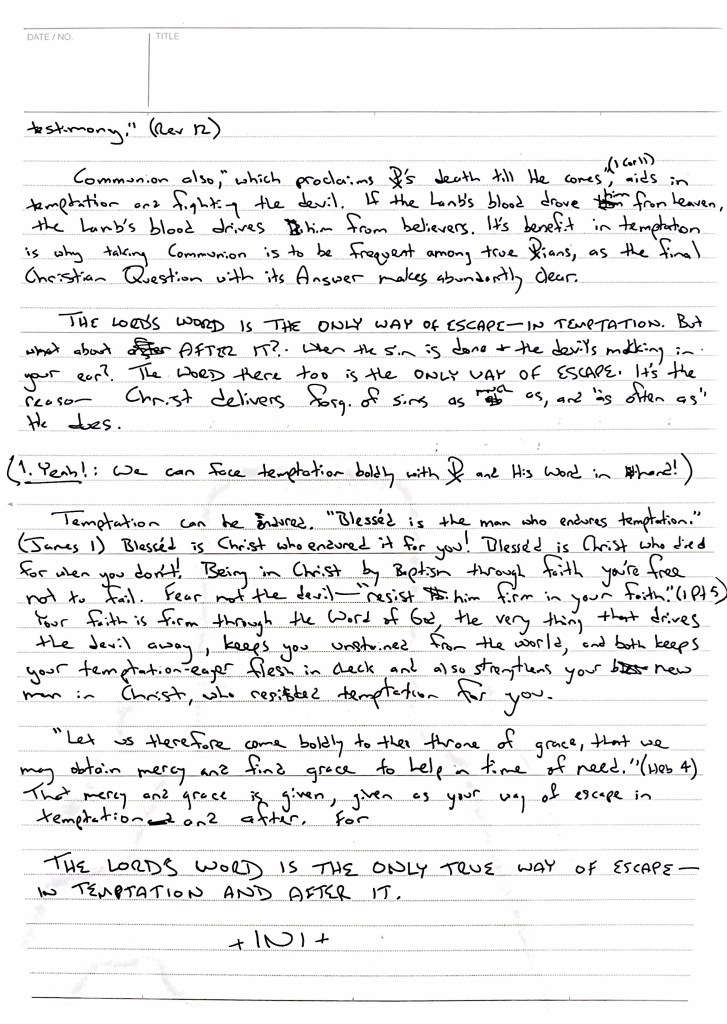 DATE / NO.
TITLE
testimony." (Rev 12)
Communion also, "which proclaims ☧'s death till He comes," (1 Cor 11) aids in
temptation and fighting the devil. If the Lamb's blood drove him from heaven,
the Lamb's blood drives him from believers. It's benefit in temptation
is why taking Communion is to be frequent among true ☧ians, as the final
Christian Question with its Answer makes abundantly clear.
THE LORD'S WORD IS THE ONLY WAY OF ESCAPE—IN TEMPTATION. But
what about AFTER IT? When the sin is done + the devil's mocking in
your ear? The WORD there too is the ONLY WAY OF ESCAPE. It's the
reason Christ delivers forg. of sins as much as, and "as often as"
He does.
(1. Yeah!: We can face temptation boldly with ☧ and His Word in hand!)
Temptation can be endured. "Blesséd is the man who endures temptation."
(James 1) Blesséd is Christ who endured it for you! Blesséd is Christ who died
for when you don't! Being in Christ by Baptism through faith you're free
not to fail. Fear not the devil—"resist him firm in your faith." (1 Pt 5)
Your faith is firm through the Word of God, the very thing that drives
the devil away, keeps you unstained from the world, and both keeps
your temptation-eager flesh in check and also strengthens your new
man in Christ, who resisted temptation for you.
"Let us therefore come boldly to the throne of grace, that we
may obtain mercy and find grace to help in time of need." (Heb 4)
That mercy and grace is given, given as your way of escape in
temptation and after. For
THE LORD'S WORD IS THE ONLY TRUE WAY OF ESCAPE—
IN TEMPTATION AND AFTER IT.
+ INI +